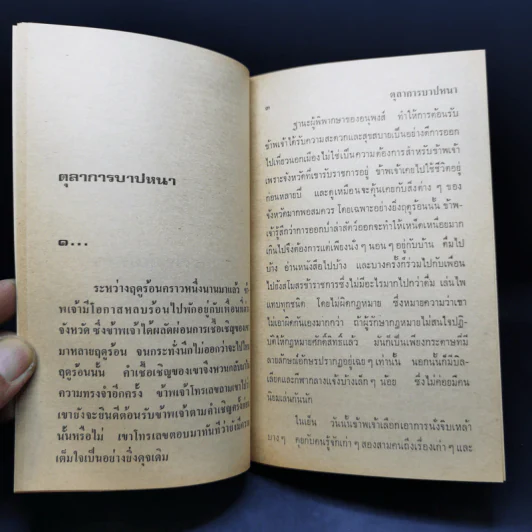 ตุลาการบาปหนา
๑...
ระหว่างฤดูร้อนคราวหนึ่งนานมาแล้ว ข้า
พเจ้ามีโอกาสหลบร้อนไปพักอยู่กับเพื่อนที่ต่าง
จังหวัด ซึ่งข้าพเจ้าได้ผลัดผ่อนการเชื้อเชิญของเขา
มาหลายฤดูร้อน จนกระทั่งนึกไม่ออกว่าจะไปไหน
ฤดูร้อนนั้น คำเชื้อเชิญของเขาจึงหวนกลับมาใน
ความทรงจำอีกครั้ง ข้าพเจ้าโทรเลขถามเขาไปว่า
เขายังจะยินดีต้อนรับข้าพเจ้าตามคำเชิญครั้งก่อน
นั้นหรือไม่ เขาโทรเลขตอบมาทันทีว่ายัง
เต็มใจเป็นอย่างยิ่งดุจเดิม
๓ ตุลาการบาปหนา
ฐานะผู้พิพากษาของอนุพงส์ ทำให้การต้อนรับ
ข้าพเจ้าได้รับความสะดวกและสุขสบายเป็นอย่างดีการออก
ไปเที่ยวนอกเมืองไม่ใช่เป็นความต้องการสำหรับข้าพเจ้า
เพราะจังหวัดที่เขารับราชการอยู่ ข้าพเจ้าเคยไปใช้ชีวิตอยู่
ก่อนหลายปี และดูเหมือนจะคุ้นเคยกับสิ่งต่าง ๆ ของ
จังหวัดมากพอสมควร โดยเฉพาะอย่างยิ่งฤดูร้อนนั้น ข้าพ-
เจ้ารู้สึกว่าการออกป่าล่าสัตว์ออกจะทำให้เหน็ดเหนื่อยมาก
เกินไปจึงต้องการแต่เพียงนั่ง ๆ นอน ๆ อยู่กับบ้าน ดื่มไป
บ้าง อ่านหนังสือไปบ้าง และบางครั้งก็ร่วมไปกับเพื่อน
ไปยังสโมสรข้าราชการ ซึ่งไม่มีอะไรมากไปกว่าดื่ม เล่นไพ่
แทบทุกชนิด โดยไม่ผิดกฎหมาย ซึ่งหมายความว่าเขา
ไม่เอาผิดกันเองมากกว่า ถ้าผู้รักษากฎหมายไม่สนใจปฏิ-
บัติให้กฎหมายศักดิ์สิทธิ์แล้ว มันก็เป็นเพียงกระดาษที่มี
ลายลักษณ์อักษรปรากฏอยู่เฉย ๆ เท่านั้น นอกนั้นก็มีบิล-
เลียดและกีฬากลางแจ้งบ้างเล็ก ๆ น้อย ซึ่งไม่ค่อยมีคน
นิยมเล่นกันนัก
ในเย็น วันนั้นข้าพเจ้าเลือกเอาการนั่งจิบเหล้า
บาง ๆ คุยกับคนรู้จักเก่า ๆ สองสามคนถึงเรื่องเก่า ๆ และ